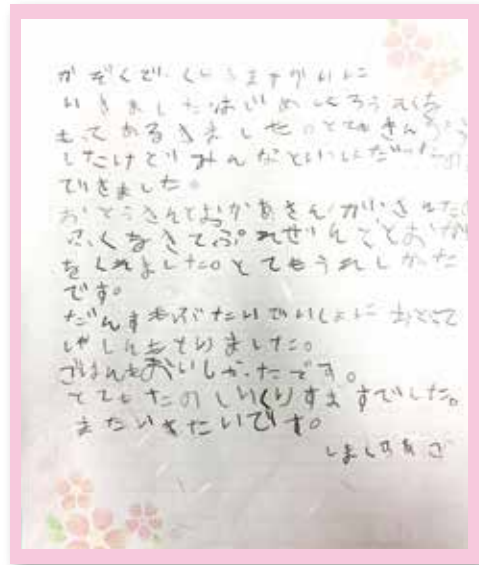 かぞくで、くりすますかいに
いきました。はじめ ろうそくを
もてあるきました。とてもきんちょう
したけどみんなといっしょだった
できました。
おとうさんとおかあさんが
ふくをきてぷれぜんととおか
をくれました。とてもうれしかた
です。
だんすもぶたいでいしょに おどて
しゃしんもとりました。
ごはんもおいしかったです。
とてもたのしいくりすますでした。
またいきたいです。